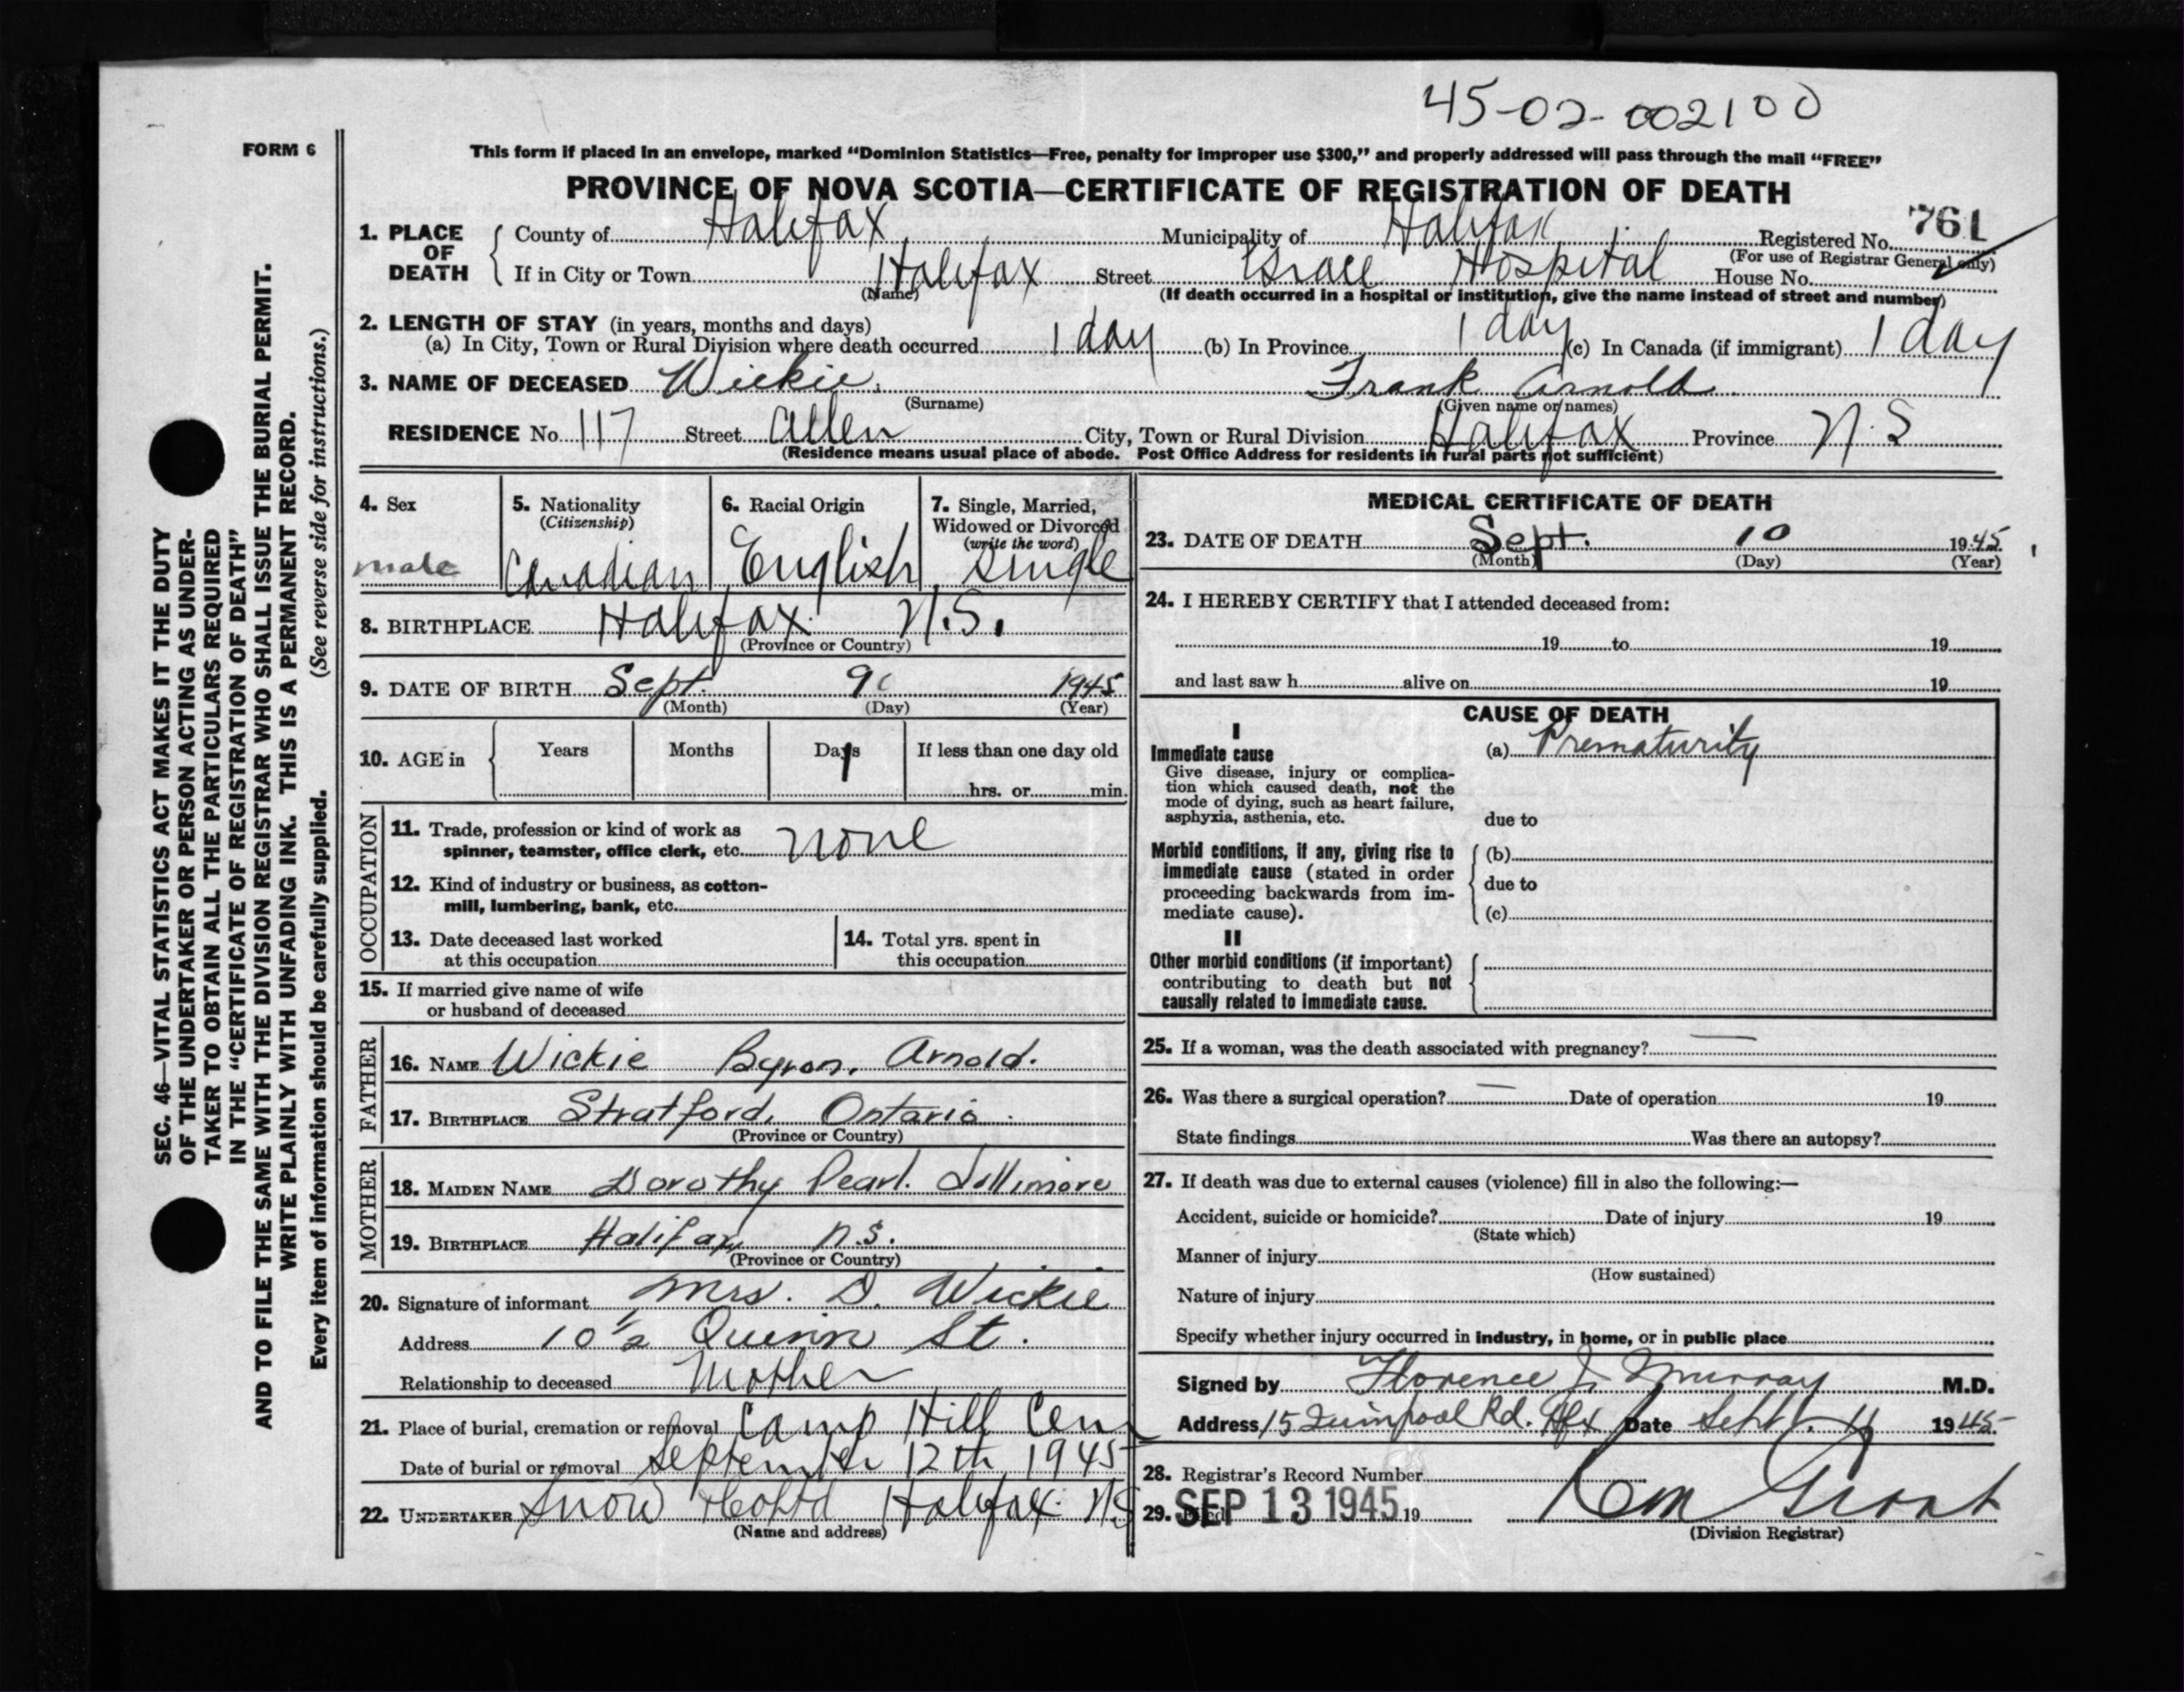 45-02-002100
FORM 6
This form if placed in an envelope, marked "Dominion Statistics—Free, penalty for improper use $300," and properly addressed will pass through the mail "FREE"
PROVINCE OF NOVA SCOTIA—CERTIFICATE OF REGISTRATION OF DEATH
1. PLACE OF DEATH { County of Halifax Municipality of Halifax Registered No. 761
(For use of Registrar General only)
If in City or Town Halifax Street Grace Hospital House No.
(Name) (If death occurred in a hospital or institution, give the name instead of street and number)
2. LENGTH OF STAY (in years, months and days)
(a) In City, Town or Rural Division where death occurred 1 day (b) In Province 1 day (c) In Canada (if immigrant) 1 day
3. NAME OF DECEASED Wickie, Frank Arnold
(Surname) (Given name or names)
RESIDENCE No. 117 Street Allen City, Town or Rural Division Halifax Province N.S
(Residence means usual place of abode. Post Office Address for residents in rural parts not sufficient)
4. Sex
male
5. Nationality
(Citizenship)
Canadian
6. Racial Origin
English
7. Single, Married,
Widowed or Divorced
(write the word)
single
8. BIRTHPLACE Halifax N.S.
(Province or Country)
9. DATE OF BIRTH Sept. 9 1945
(Month) (Day) (Year)
10. AGE in { Years Months Days If less than one day old
1 hrs. or min.
OCCUPATION
11. Trade, profession or kind of work as
spinner, teamster, office clerk, etc. none
12. Kind of industry or business, as cotton-
mill, lumbering, bank, etc.
13. Date deceased last worked
at this occupation
14. Total yrs. spent in
this occupation
15. If married give name of wife
or husband of deceased
FATHER
16. NAME Wickie Byron. Arnold.
17. BIRTHPLACE Stratford, Ontario.
(Province or Country)
MOTHER
18. MAIDEN NAME Dorothy Pearl. Dillimore
19. BIRTHPLACE Halifax, N.S.
(Province or Country)
20. Signature of informant Mrs. D. Wickie
Address 10 1/2 Quinn St.
Relationship to deceased Mother
21. Place of burial, cremation or removal Camp Hill Cem
Date of burial or removal September 12th 1945
22. UNDERTAKER Snow & Co Ltd Halifax N.S
(Name and address)
MEDICAL CERTIFICATE OF DEATH
23. DATE OF DEATH Sept. 10 1945
(Month) (Day) (Year)
24. I HEREBY CERTIFY that I attended deceased from:
19 to 19
and last saw h alive on 19
CAUSE OF DEATH
I
Immediate cause
Give disease, injury or complica-
tion which caused death, not the
mode of dying, such as heart failure,
asphyxia, asthenia, etc.
(a) Prematurity
due to
Morbid conditions, if any, giving rise to
immediate cause (stated in order
proceeding backwards from im-
mediate cause).
(b)
due to
(c)
II
Other morbid conditions (if important)
contributing to death but not
causally related to immediate cause.
25. If a woman, was the death associated with pregnancy? —
26. Was there a surgical operation? — Date of operation 19
State findings Was there an autopsy?
27. If death was due to external causes (violence) fill in also the following:—
Accident, suicide or homicide? Date of injury 19
(State which)
Manner of injury
(How sustained)
Nature of injury
Specify whether injury occurred in industry, in home, or in public place
Signed by Florence J. Murray M.D.
Address 15 Quinpool Rd. Hfx Date Sept. 11 1945
28. Registrar's Record Number
29. Filed SEP 13 1945 19
(Division Registrar)
SEC. 46—VITAL STATISTICS ACT MAKES IT THE DUTY
OF THE UNDERTAKER OR PERSON ACTING AS UNDER-
TAKER TO OBTAIN ALL THE PARTICULARS REQUIRED
IN THE "CERTIFICATE OF REGISTRATION OF DEATH"
AND TO FILE THE SAME WITH THE DIVISION REGISTRAR WHO SHALL ISSUE THE BURIAL PERMIT.
WRITE PLAINLY WITH UNFADING INK. THIS IS A PERMANENT RECORD.
Every item of information should be carefully supplied. (See reverse side for instructions.)